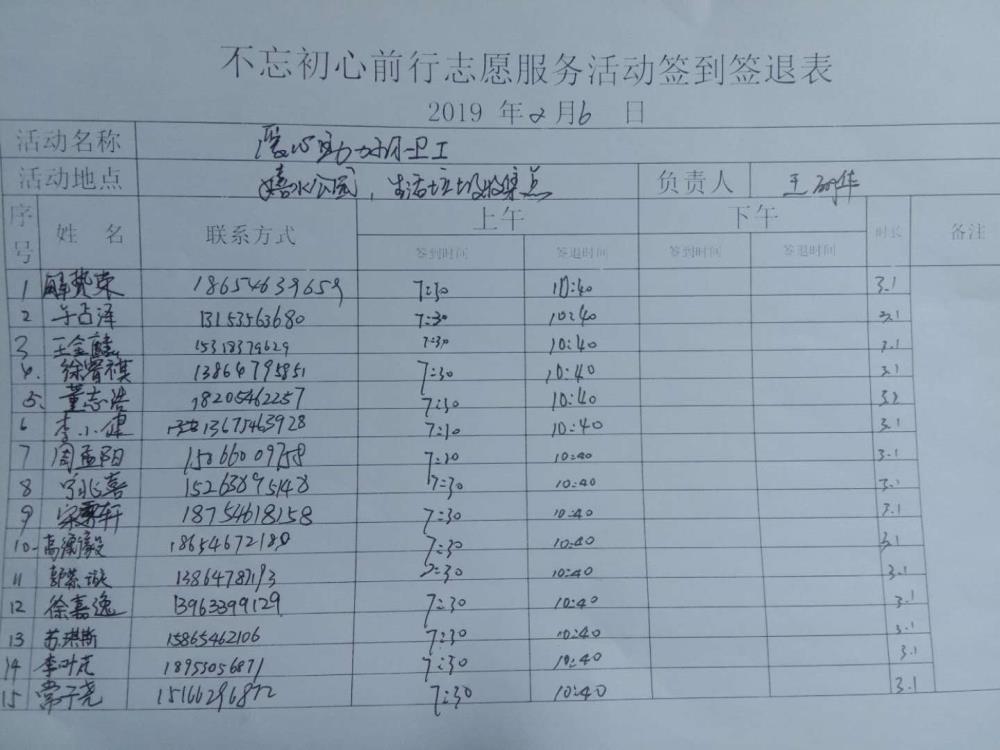 不忘初心前行志愿服务活动签到签退表
2019 年2月6 日
活动名称 爱心助力环卫工
活动地点 嬉水公园，生活垃圾收集点 负责人 王
序号 姓 名 联系方式 上午 下午 时长 备注
签到时间 签退时间 签到时间 签退时间
1 解赞荣 18654639659 7:30 10:40 3.1
2 于占泽 13153563680 7:30 10:40 3.1
3 王金 15318379629 7:30 10:40 3.1
4. 徐睿祺 13864795851 7:30 10:40 3.1
5. 董志浩 18205462257 7:30 10:40
6 李小健 13675463928 7:30 10:40 3.1
7 周孟阳 15066009758 7:30 10:40 3.1
8 兆喜 15263895148 7:30 10:40 3.1
9 宋 轩 18754618158 7:30 10:40 3.1
10. 高 毅 7:30 10:40 3.1
11 7:30 10:40 3.1
12 徐嘉逸 13963399129 7:30 10:40 3.1
13 苏琪斯 15865462106 7:30 10:40 3.1
14 李叶 7:30 10:40 3.1
15 常子尧 15166296872 7:30 10:40 3.1